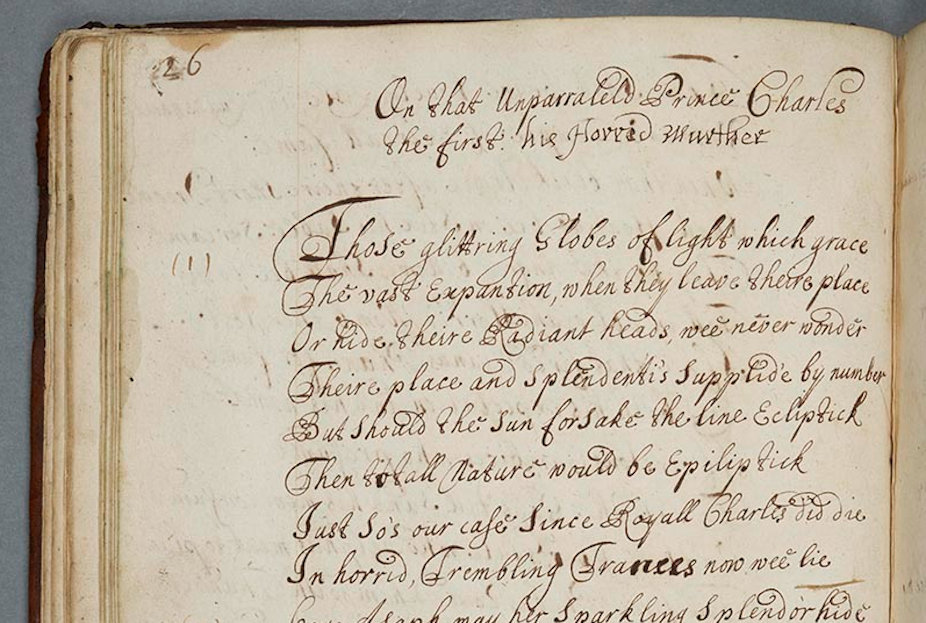 26
On that Unparraleld Prince Charles
the first. his Horrid Murther
(1)
Those glittring Globes of light which grace
The vast Expantion, when they leave theire place
Or hide theire Radiant heads, wee never wonder
Theire place and Splendenti's Supplide by number
But should the Sun forsake the line Ecliptick
Then totall Nature would be Epiliptick
Just so's our case Since Royall Charles did die
In horrid, Trembling Trances now wee lie
may her Sparkling Splendor hide